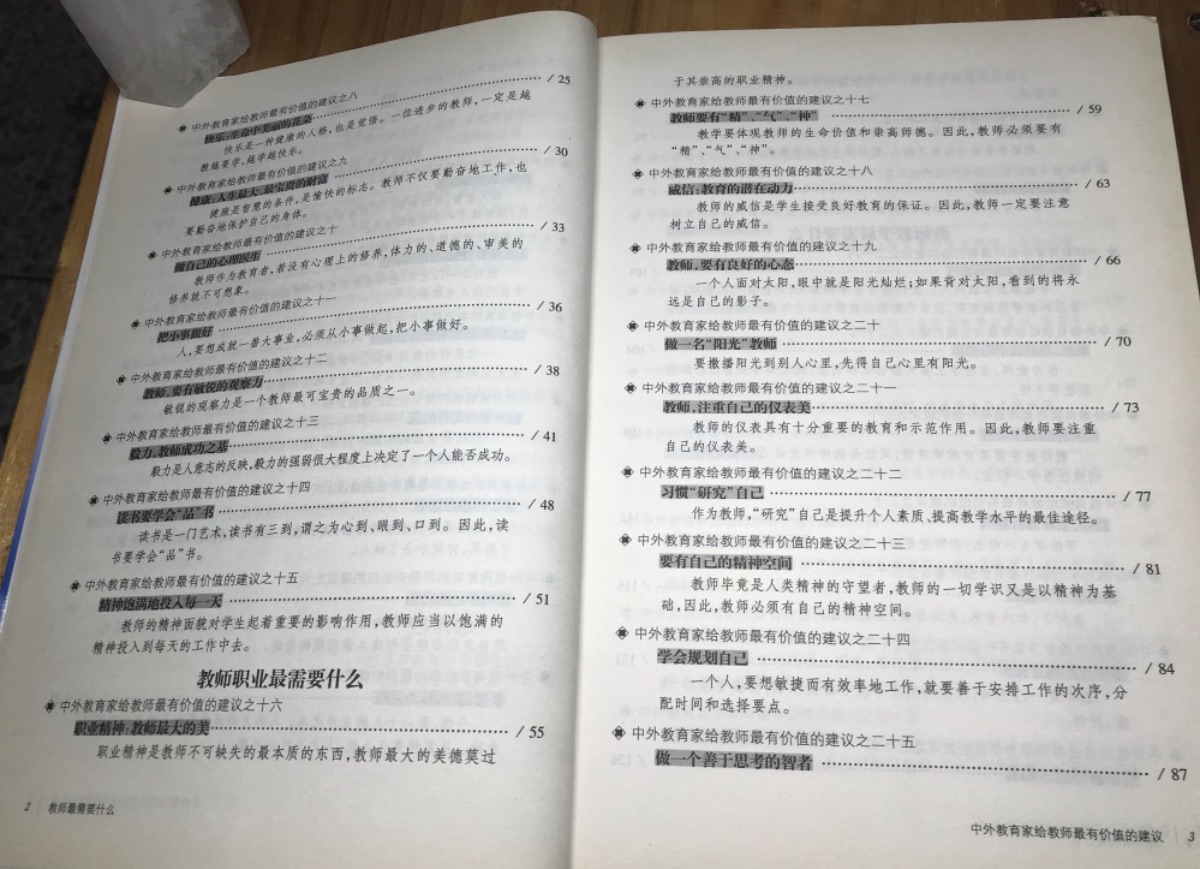 中外教育家给教师最有价值的建议之八
快乐:生命中美丽的花朵 …… / 25
快乐是一种健康的人格,也是觉悟。一位进步的教师,一定是越
教越要学,越学越快乐。
中外教育家给教师最有价值的建议之九
健康:人生最大、最宝贵的财富 …… / 30
健康是智慧的条件,是愉快的标志。教师不仅要勤奋地工作,也
要勤奋地保护自己的身体。
中外教育家给教师最有价值的建议之十
做自己的心理医生 …… / 33
教师作为教育者,若没有心理上的修养,体力的、道德的、审美的
修养就不可想象。
中外教育家给教师最有价值的建议之十一
把小事做好 …… / 36
人,要想成就一番大事业,必须从小事做起,把小事做好。
中外教育家给教师最有价值的建议之十二
教师,要有敏锐的观察力 …… / 38
敏锐的观察力是一个教师最可宝贵的品质之一。
中外教育家给教师最有价值的建议之十三
毅力,教师成功之基 …… / 41
毅力是人意志的反映,毅力的强弱很大程度上决定了一个人能否成功。
中外教育家给教师最有价值的建议之十四
读书要学会“品”书 …… / 48
读书是一门艺术,读书有三到,谓之为心到、眼到、口到。因此,读
书要学会“品”书。
中外教育家给教师最有价值的建议之十五
精神饱满地投入每一天 …… / 51
教师的精神面貌对学生起着重要的影响作用,教师应当以饱满的
精神投入到每天的工作中去。
教师职业最需要什么
中外教育家给教师最有价值的建议之十六
职业精神:教师最大的美 …… / 55
职业精神是教师不可缺失的最本质的东西,教师最大的美德莫过
2 教师最需要什么
于其崇高的职业精神。
中外教育家给教师最有价值的建议之十七
教师要有“精”、“气”、“神” …… / 59
教学要体现教师的生命价值和崇高师德。因此,教师必须要有
“精”、“气”、“神”。
中外教育家给教师最有价值的建议之十八
威信:教育的潜在动力 …… / 63
教师的威信是学生接受良好教育的保证。因此,教师一定要注意
树立自己的威信。
中外教育家给教师最有价值的建议之十九
教师,要有良好的心态 …… / 66
一个人面对太阳,眼中就是阳光灿烂;如果背对太阳,看到的将永
远是自己的影子。
中外教育家给教师最有价值的建议之二十
做一名“阳光”教师 …… / 70
要撒播阳光到别人心里,先得自己心里有阳光。
中外教育家给教师最有价值的建议之二十一
教师,注重自己的仪表美 …… / 73
教师的仪表具有十分重要的教育和示范作用。因此,教师要注重
自己的仪表美。
中外教育家给教师最有价值的建议之二十二
习惯“研究”自己 …… / 77
作为教师,“研究”自己是提升个人素质、提高教学水平的最佳途径。
中外教育家给教师最有价值的建议之二十三
要有自己的精神空间 …… / 81
教师毕竟是人类精神的守望者,教师的一切学识又是以精神为基
础,因此,教师必须有自己的精神空间。
中外教育家给教师最有价值的建议之二十四
学会规划自己 …… / 84
一个人,要想敏捷而有效率地工作,就要善于安排工作的次序,分
配时间和选择要点。
中外教育家给教师最有价值的建议之二十五
做一个善于思考的智者 …… / 87
中外教育家给教师最有价值的建议 3